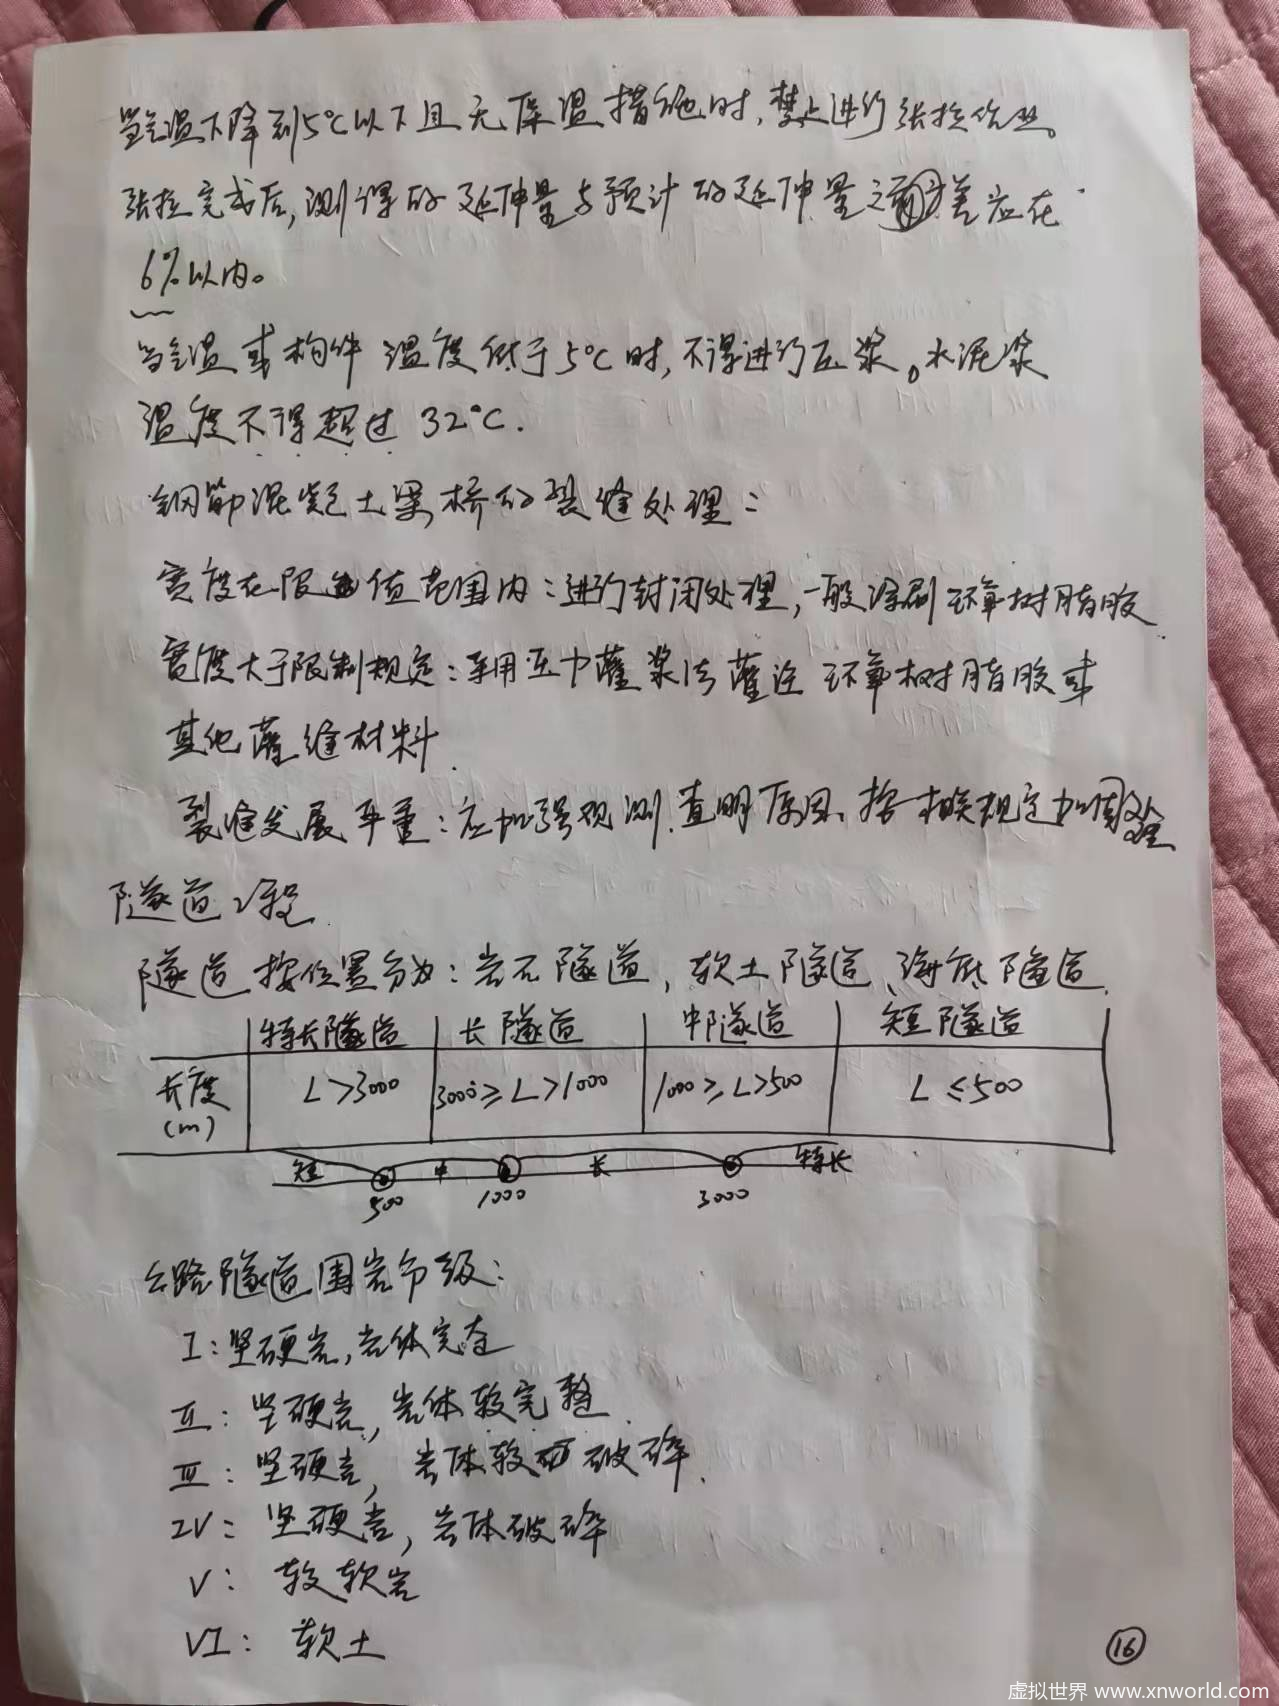 当气温下降到5℃以下且无保温措施时,禁止进行张拉作业。
张拉完成后,测得的延伸量与预计的延伸量之差应在
6%以内。
当气温或构件温度低于5℃时,不得进行压浆。水泥浆
温度不得超过32℃.
钢筋混凝土梁桥的裂缝处理:
宽度在限值范围内:进行封闭处理,一般涂刷环氧树脂胶
宽度大于限制规定:采用压力灌浆法灌注环氧树脂胶或
其他灌缝材料.
裂缝发展严重:应加强观测.查明原因.按相关规定加固处理
隧道工程.
隧道按位置分为:岩石隧道,软土隧道、海底隧道.
特长隧道 长隧道 中隧道 短隧道
长度(m) L>3000 3000≥L>1000 1000≥L>500 L≤500
短 中 长 特长
500 1000 3000
公路隧道围岩分级:
I:坚硬岩,岩体完整
II:坚硬岩,岩体较完整.
III:坚硬岩,岩体较破碎.
IV:坚硬岩,岩体破碎
V:较软岩
VI:软土
16
虚拟世界 www.xnworld.com